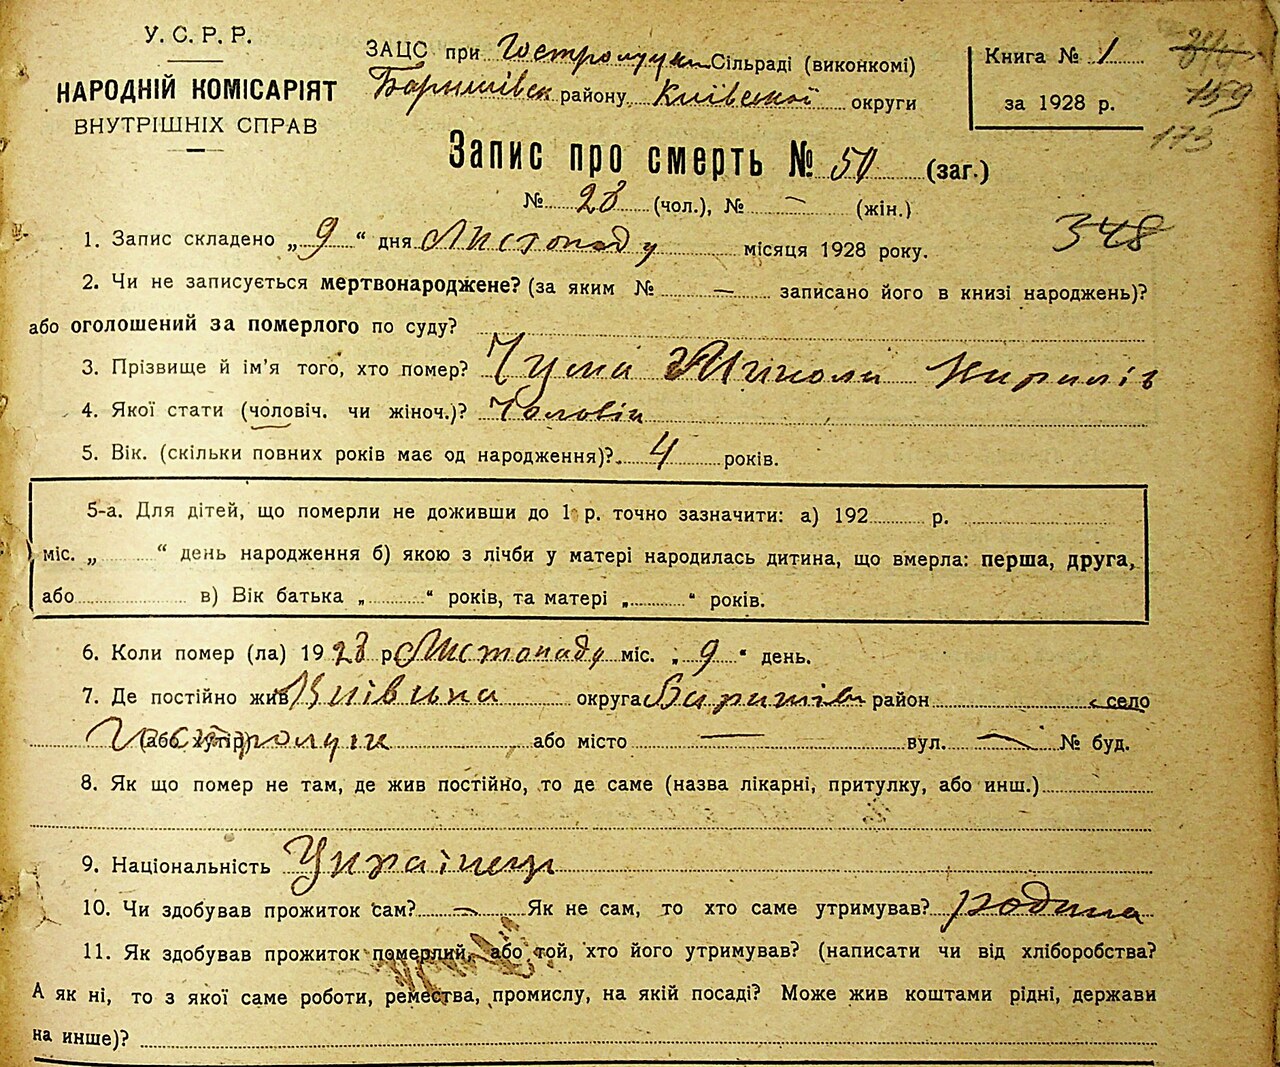 У. С. Р. Р.
НАРОДНІЙ КОМІСАРІЯТ
ВНУТРІШНІХ СПРАВ
ЗАЦС при Гостролуцьк Сільраді (виконкомі)
Баришівськ району Київської округи
Книга № 1
за 1928 р.
159
173
Запис про смерть № 50 (заг.)
№ 28 (чол.), № — (жін.)
348
1. Запис складено „ 9 “ дня Листопаду місяця 1928 року.
2. Чи не записується мертвонароджене? (за яким № — записано його в книзі народжень)?
або оголошений за померлого по суду?
3. Прізвище й ім'я того, хто помер? Чума Микола Кирилів
4. Якої статі (чоловіч. чи жіноч.)? Чоловік
5. Вік. (скільки повних років має од народження)? 4 років.
5-а. Для дітей, що померли не доживши до 1 р. точно зазначити: а) 192 р.
міс. „ “ день народження б) якою з лічби у матері народилась дитина, що вмерла: перша, друга,
або в) Вік батька „ “ років, та матері „ “ років.
6. Коли помер (ла) 1928 р. Листопаду міс. „ 9 “ день.
7. Де постійно жив Київська округа Баришівськ район село
Гостролуччя (або хутір) або місто — вул. — № буд.
8. Як що помер не там, де жив постійно, то де саме (назва лікарні, притулку, або инш.)
9. Національність Українець
10. Чи здобував прожиток сам? — Як не сам, то хто саме утримував? родина
11. Як здобував прожиток померлий, або той, хто його утримував? (написати чи від хліборобства?
А як ні, то з якої саме роботи, ремества, промислу, на якій посаді? Може жив коштами рідні, держави
на инше)?